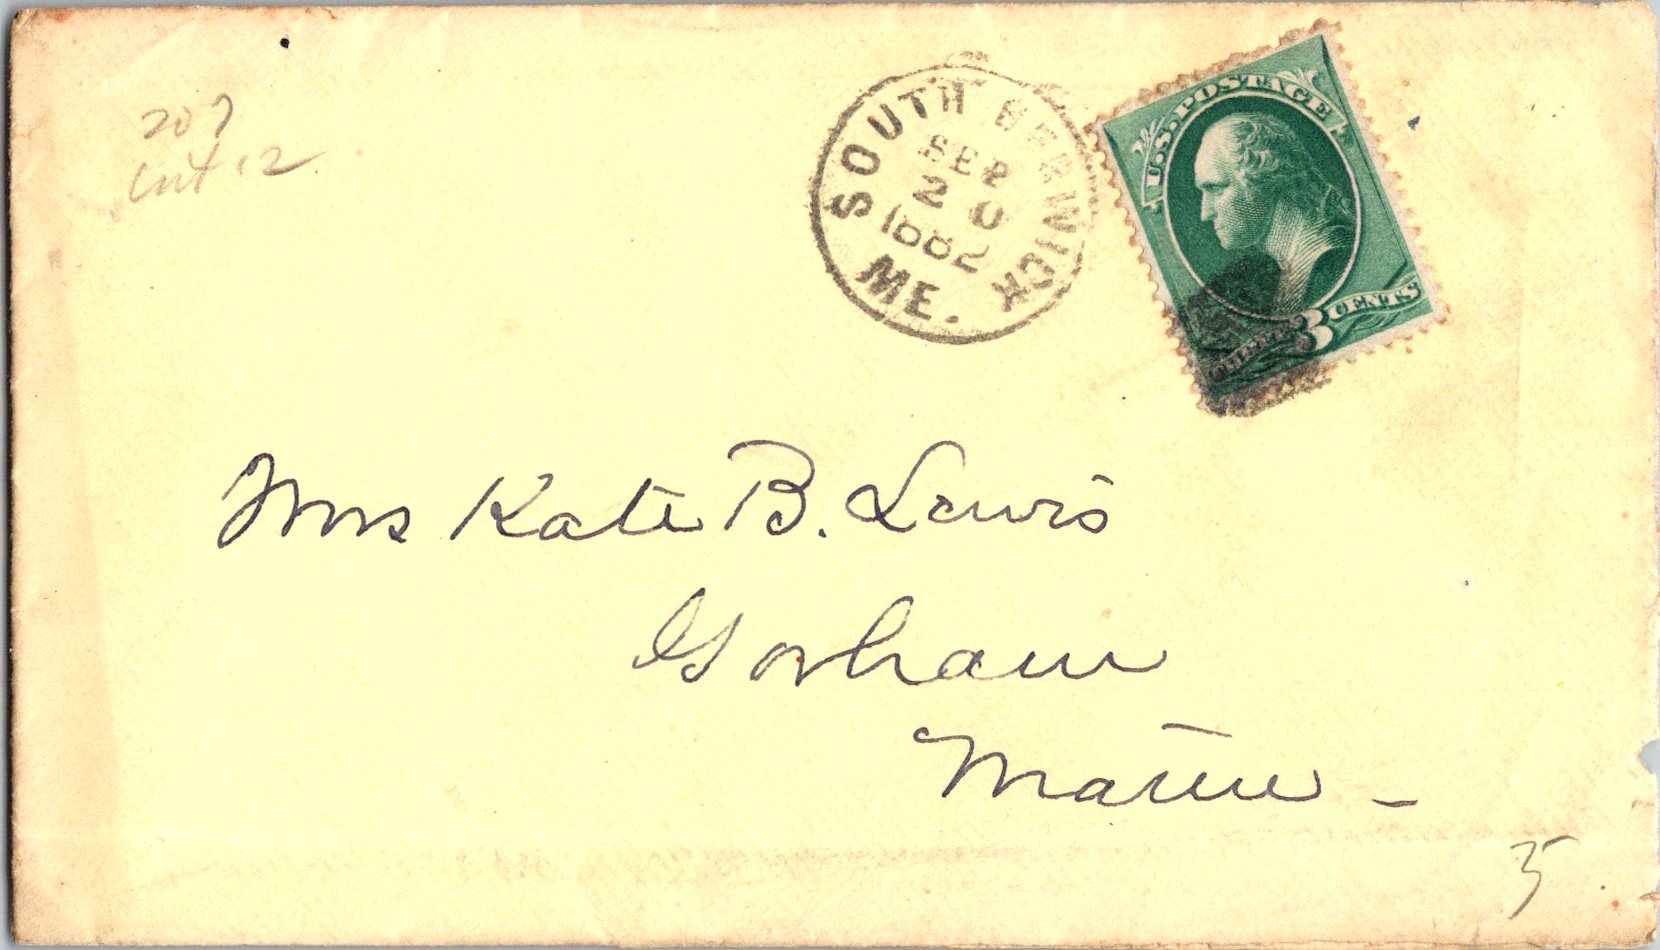 207
SOUTH BERWICK
SEP
20
1882
ME.
U.S. POSTAGE
THREE 3 CENTS
Mrs Kate B. Lewis
Gorham
Maine -
5